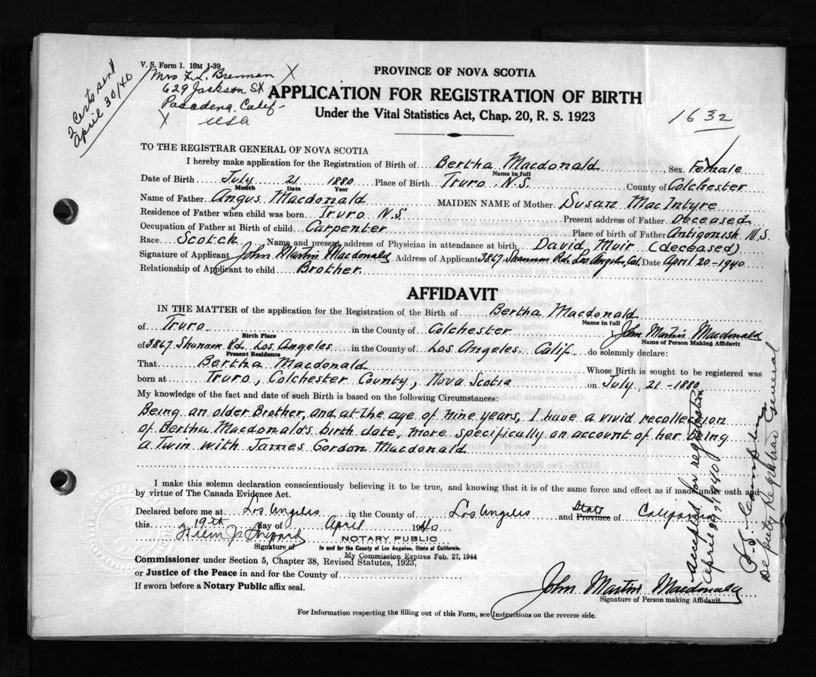 V. S. Form 1. 10M 1-39
2 Certs sent
April 30/40
Mrs F. L. Brennan X
629 Jackson St
Pasadena, Calif-
X USA
PROVINCE OF NOVA SCOTIA
APPLICATION FOR REGISTRATION OF BIRTH
Under the Vital Statistics Act, Chap. 20, R. S. 1923
1632
TO THE REGISTRAR GENERAL OF NOVA SCOTIA
I hereby make application for the Registration of Birth of Bertha Macdonald Sex Female
Name in full
Date of Birth July 21 1880 Place of Birth Truro N.S. County of Colchester
Month Date Year
Name of Father Angus Macdonald MAIDEN NAME of Mother Susan MacIntyre
Residence of Father when child was born Truro N.S. Present address of Father Deceased
Occupation of Father at Birth of child Carpenter Place of birth of Father Antigonish N.S.
Race Scotch Name and present address of Physician in attendance at birth David Muir (deceased)
Signature of Applicant John Martin Macdonald Address of Applicant 3867 Rd. Los Angeles, Cal. Date April 20-1940
Relationship of Applicant to child Brother
AFFIDAVIT
IN THE MATTER of the application for the Registration of the Birth of Bertha Macdonald
Name in full
of Truro in the County of Colchester I John Martin Macdonald
Birth Place Name of Person Making Affidavit
of 3867 Rd. Los Angeles in the County of Los Angeles Calif. do solemnly declare:
Present Residence
That Bertha Macdonald Whose Birth is sought to be registered was
born at Truro, Colchester County, Nova Scotia on July 21-1880
My knowledge of the fact and date of such Birth is based on the following Circumstances:
Being an older Brother, and at the age of nine years, I have a vivid recollection
of Bertha Macdonald's birth date, more specifically on account of her being
a Twin with James Gordon Macdonald
I make this solemn declaration conscientiously believing it to be true, and knowing that it is of the same force and effect as if made under oath and
by virtue of The Canada Evidence Act.
Declared before me at Los Angeles in the County of Los Angeles and State Province of California
this 19th day of April 1940
NOTARY PUBLIC
Signature of In and for the County of Los Angeles, State of California.
My Commission Expires Feb. 27, 1944
Commissioner under Section 5, Chapter 38, Revised Statutes, 1923,
or Justice of the Peace in and for the County of
If sworn before a Notary Public affix seal.
John Martin Macdonald
Signature of Person making Affidavit
For Information respecting the filling out of this Form, see Instructions on the reverse side.
Accepted for registration
April 1940
Deputy Registrar General